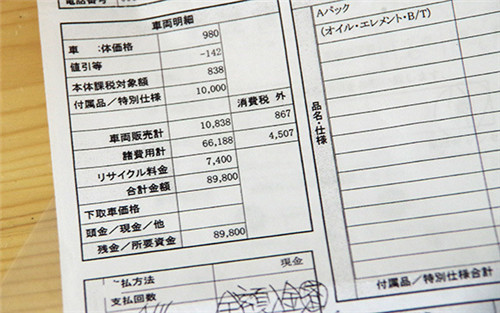 電話番号
車両明細
車　:体価格 980
値引等 -142
本体課税対象額 838
付属品/特別仕様 10,000
消費税 外
車両販売計 10,838 867
諸費用計 66,188 4,507
リサイクル料金 7,400
合計金額 89,800
下取車価格
頭金/現金/他
残金/所要資金 89,800
現金
払方法
支払回数
全額
Aパック
(オイル・エレメント・B/T)
品名・仕様
付属品/特別仕様合計